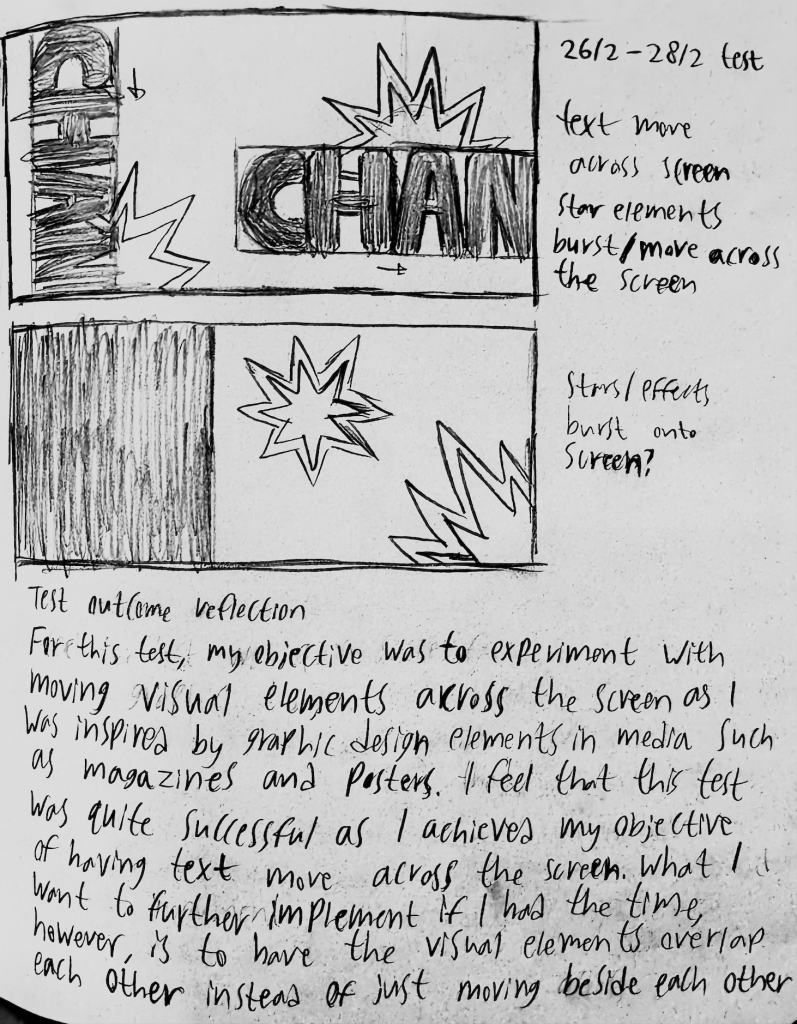 CHAN
CHAN
26/2 - 28/2 test
text move
across screen
star elements
burst/move across
the screen
Stars/effects
burst onto
screen?
Test outcome reflection
For this test, my objective was to experiment with
moving visual elements across the screen as I
was inspired by graphic design elements in media such
as magazines and posters. I feel that this test
was quite successful as I achieved my objective
of having text move across the screen. What I
want to further implement if I had the time,
however, is to have the visual elements overlap
each other instead of just moving beside each other